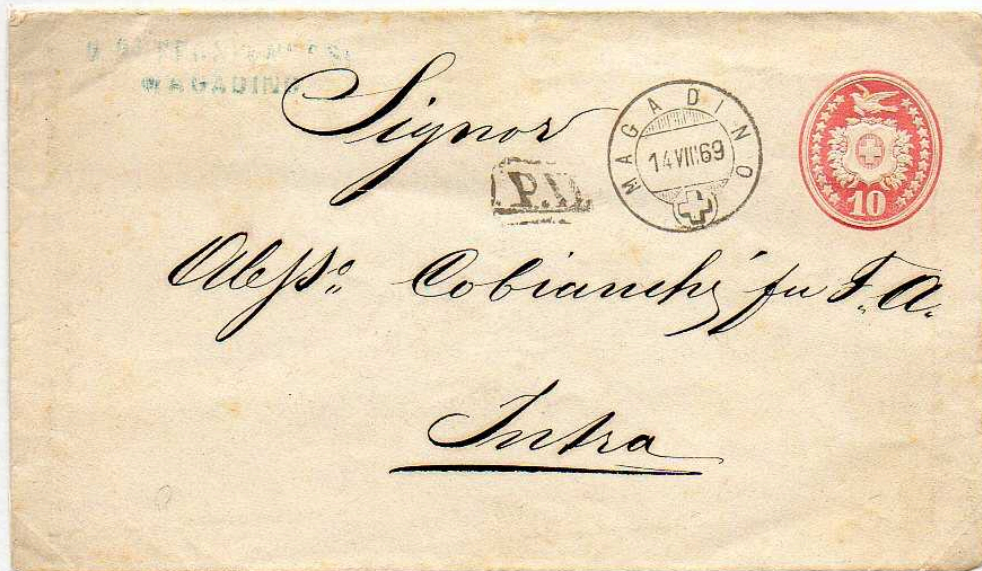 MAGADINO
Signor
MAGADINO
14 VIII 69
10
P.D.
Aless.º Cobianchi fu F. A.
Intra